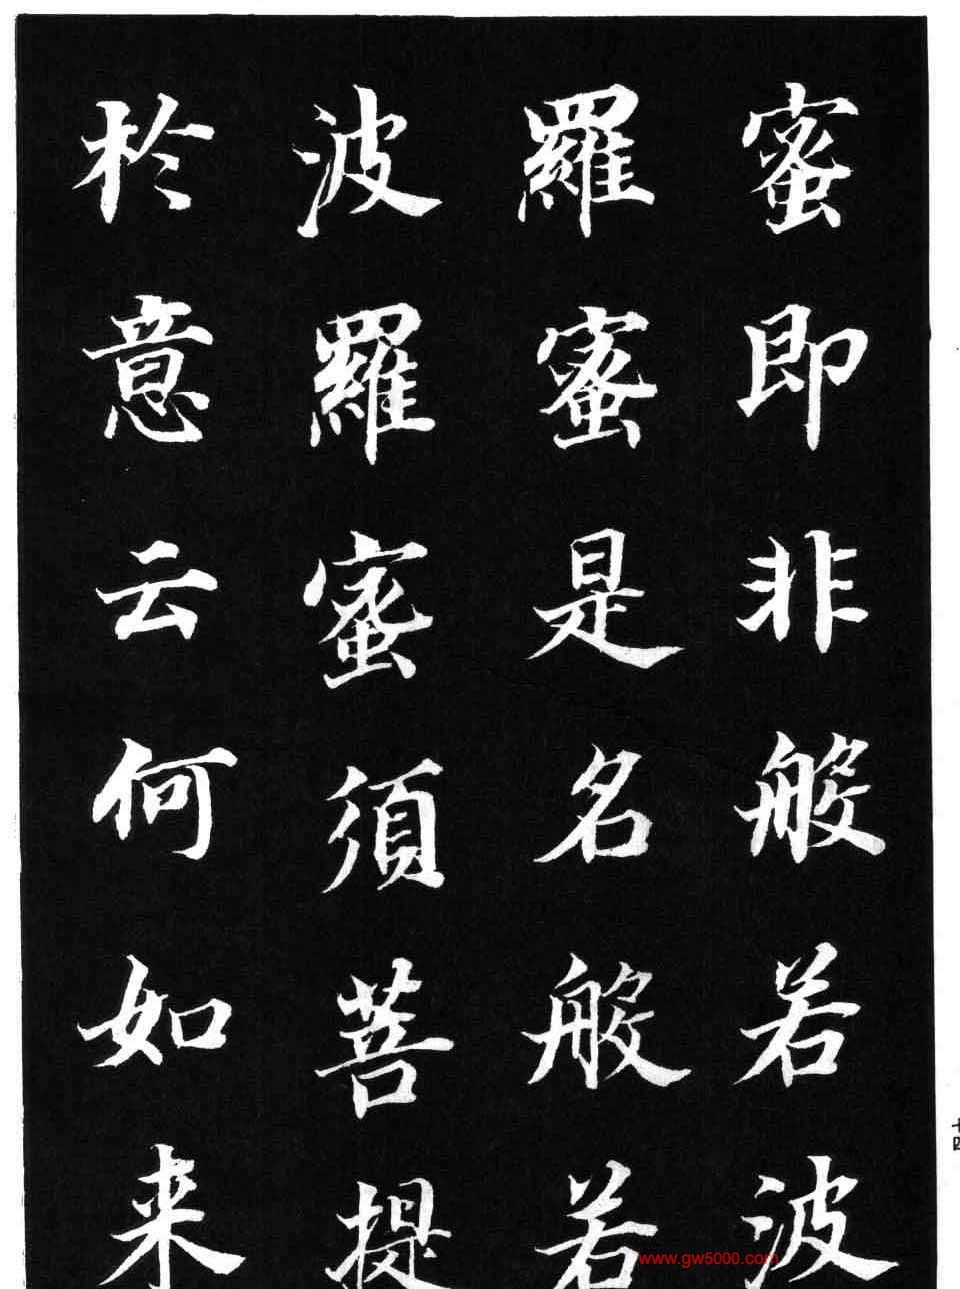 蜜即非般若波
羅蜜是名般若
波羅蜜須菩提
於意云何如来
十四
www.gw5000.com